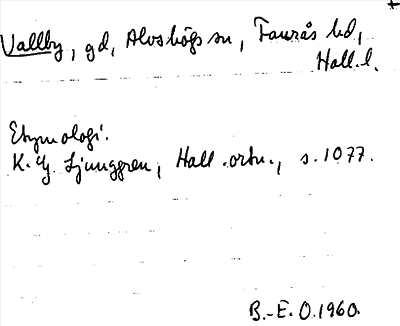 Vallby, gd, Alvshögs sn, Faurås hd,
Hall.l.
Etymologi.
K. G. Ljunggren, Hall.ortn., s. 1077.
B.-E. O. 1960.